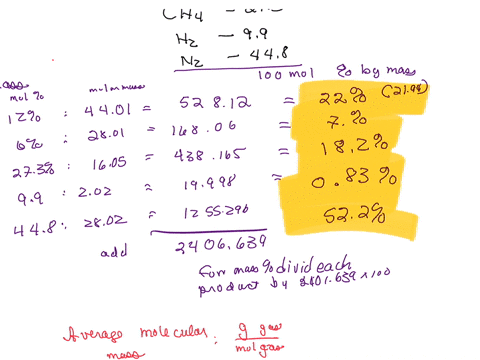 CH4 -
H2 - 9.9
N2 - 44.8
100 mol % by mass
mol % molar mass
12% : 44.01 = 528.12 = 22% (21.94)
6% : 28.01 = 168.06 = 7.%
27.3% : 16.05 = 438.165 = 18.2%
9.9 : 2.02 = 19.998 = 0.83%
44.8 : 28.02 = 1255.296 52.2%
add 2406.639
For mass % divid each
product by 2401.639 x 100
Average molecular : g gas
mass mol gas